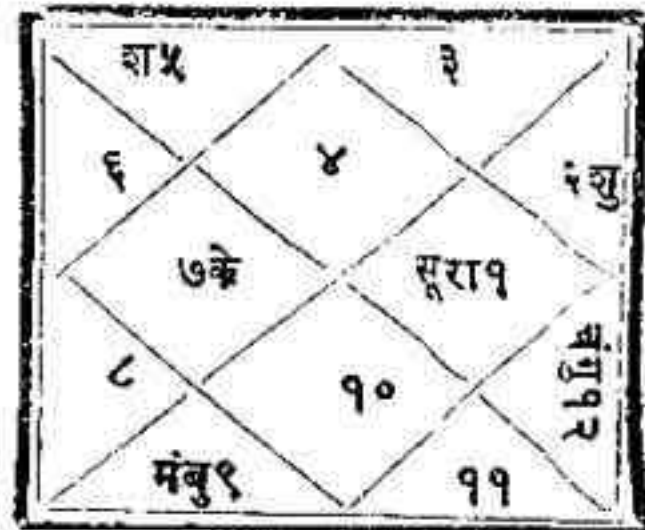 श५
३
६
४
२शु
७के
सूरा१
८
१०
चंगु१२
मंबु९
११